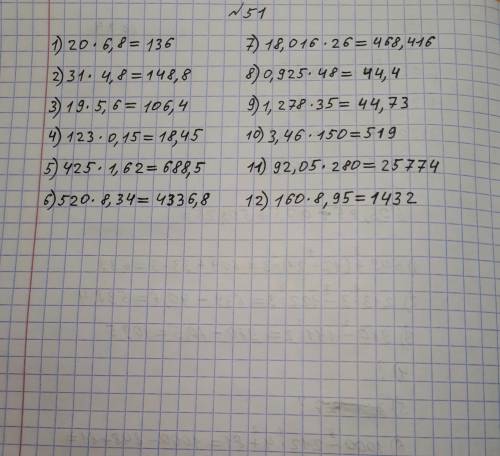 №51
1) 20 · 6,8 = 136
2) 31 · 4,8 = 148,8
3) 19 · 5,6 = 106,4
4) 123 · 0,15 = 18,45
5) 425 · 1,62 = 688,5
6) 520 · 8,34 = 4336,8
7) 18,016 · 26 = 468,416
8) 0,925 · 48 = 44,4
9) 1,278 · 35 = 44,73
10) 3,46 · 150 = 519
11) 92,05 · 280 = 25774
12) 160 · 8,95 = 1432